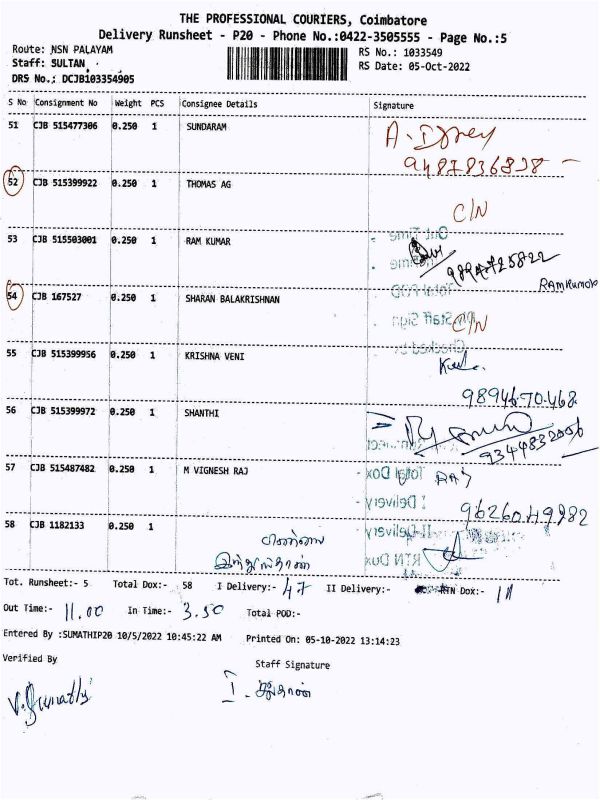 THE PROFESSIONAL COURIERS, Coimbatore
Delivery Runsheet - P20 - Phone No.:0422-3505555 - Page No.:5
Route: NSN PALAYAM
RS No.: 1033549
Staff: SULTAN,
RS Date: 05-Oct-2022
DRS No.: DCJB103354905
S No Consignment No Weight PCS Consignee Details Signature
51 CJB 515477306 0.250 1 SUNDARAM
52 CJB 515399922 0.250 1 THOMAS AG
C/N
53 CJB 515503001 0.250 1 RAM KUMAR
RAMKUMAR
54 CJB 167527 0.250 1 SHARAN BALAKRISHNAN
C/N
55 CJB 515399956 0.250 1 KRISHNA VENI
98946-70468
56 CJB 515399972 0.250 1 SHANTHI
9344832006
57 CJB 515487482 0.250 1 M VIGNESH RAJ
RAJ
9626049882
58 CJB 1182133 0.250 1
Tot. Runsheet:- 5 Total Dox:- 58 I Delivery:- 47 II Delivery:- RTN Dox:- 11
Out Time:- 11.00 In Time:- 3.50 Total POD:-
Entered By :SUMATHIP20 10/5/2022 10:45:22 AM Printed On: 05-10-2022 13:14:23
Verified By
Staff Signature
V. Sumathi